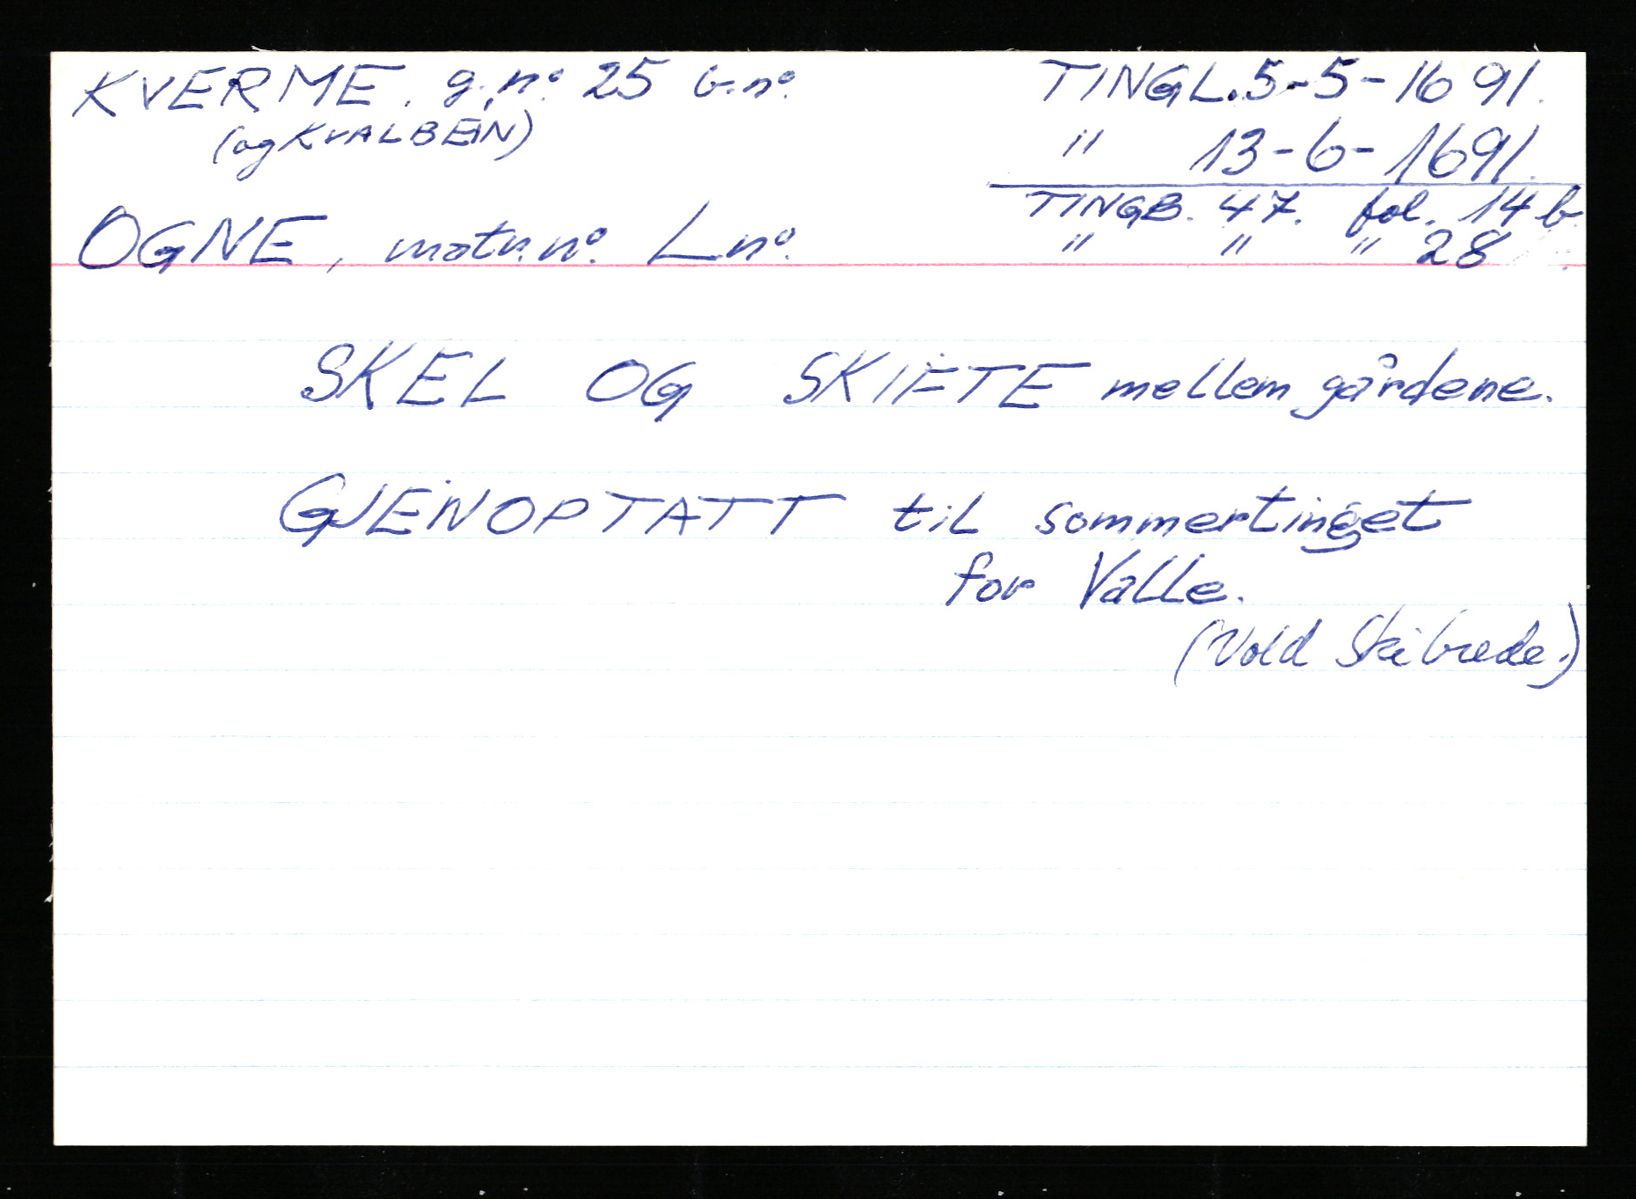 KVERME. g.nº 25 b.nº
(og KVALBEIN)
OGNE, matr.nº Lnº
TINGL. 5-5-1691.
" 13-6-1691.
TINGB. 47. fol. 14 b
" " " 28
SKEL OG SKIFTE mellem gårdene.
GJENOPTATT til sommertinget
for Valle.
(Vold Skibrede.)